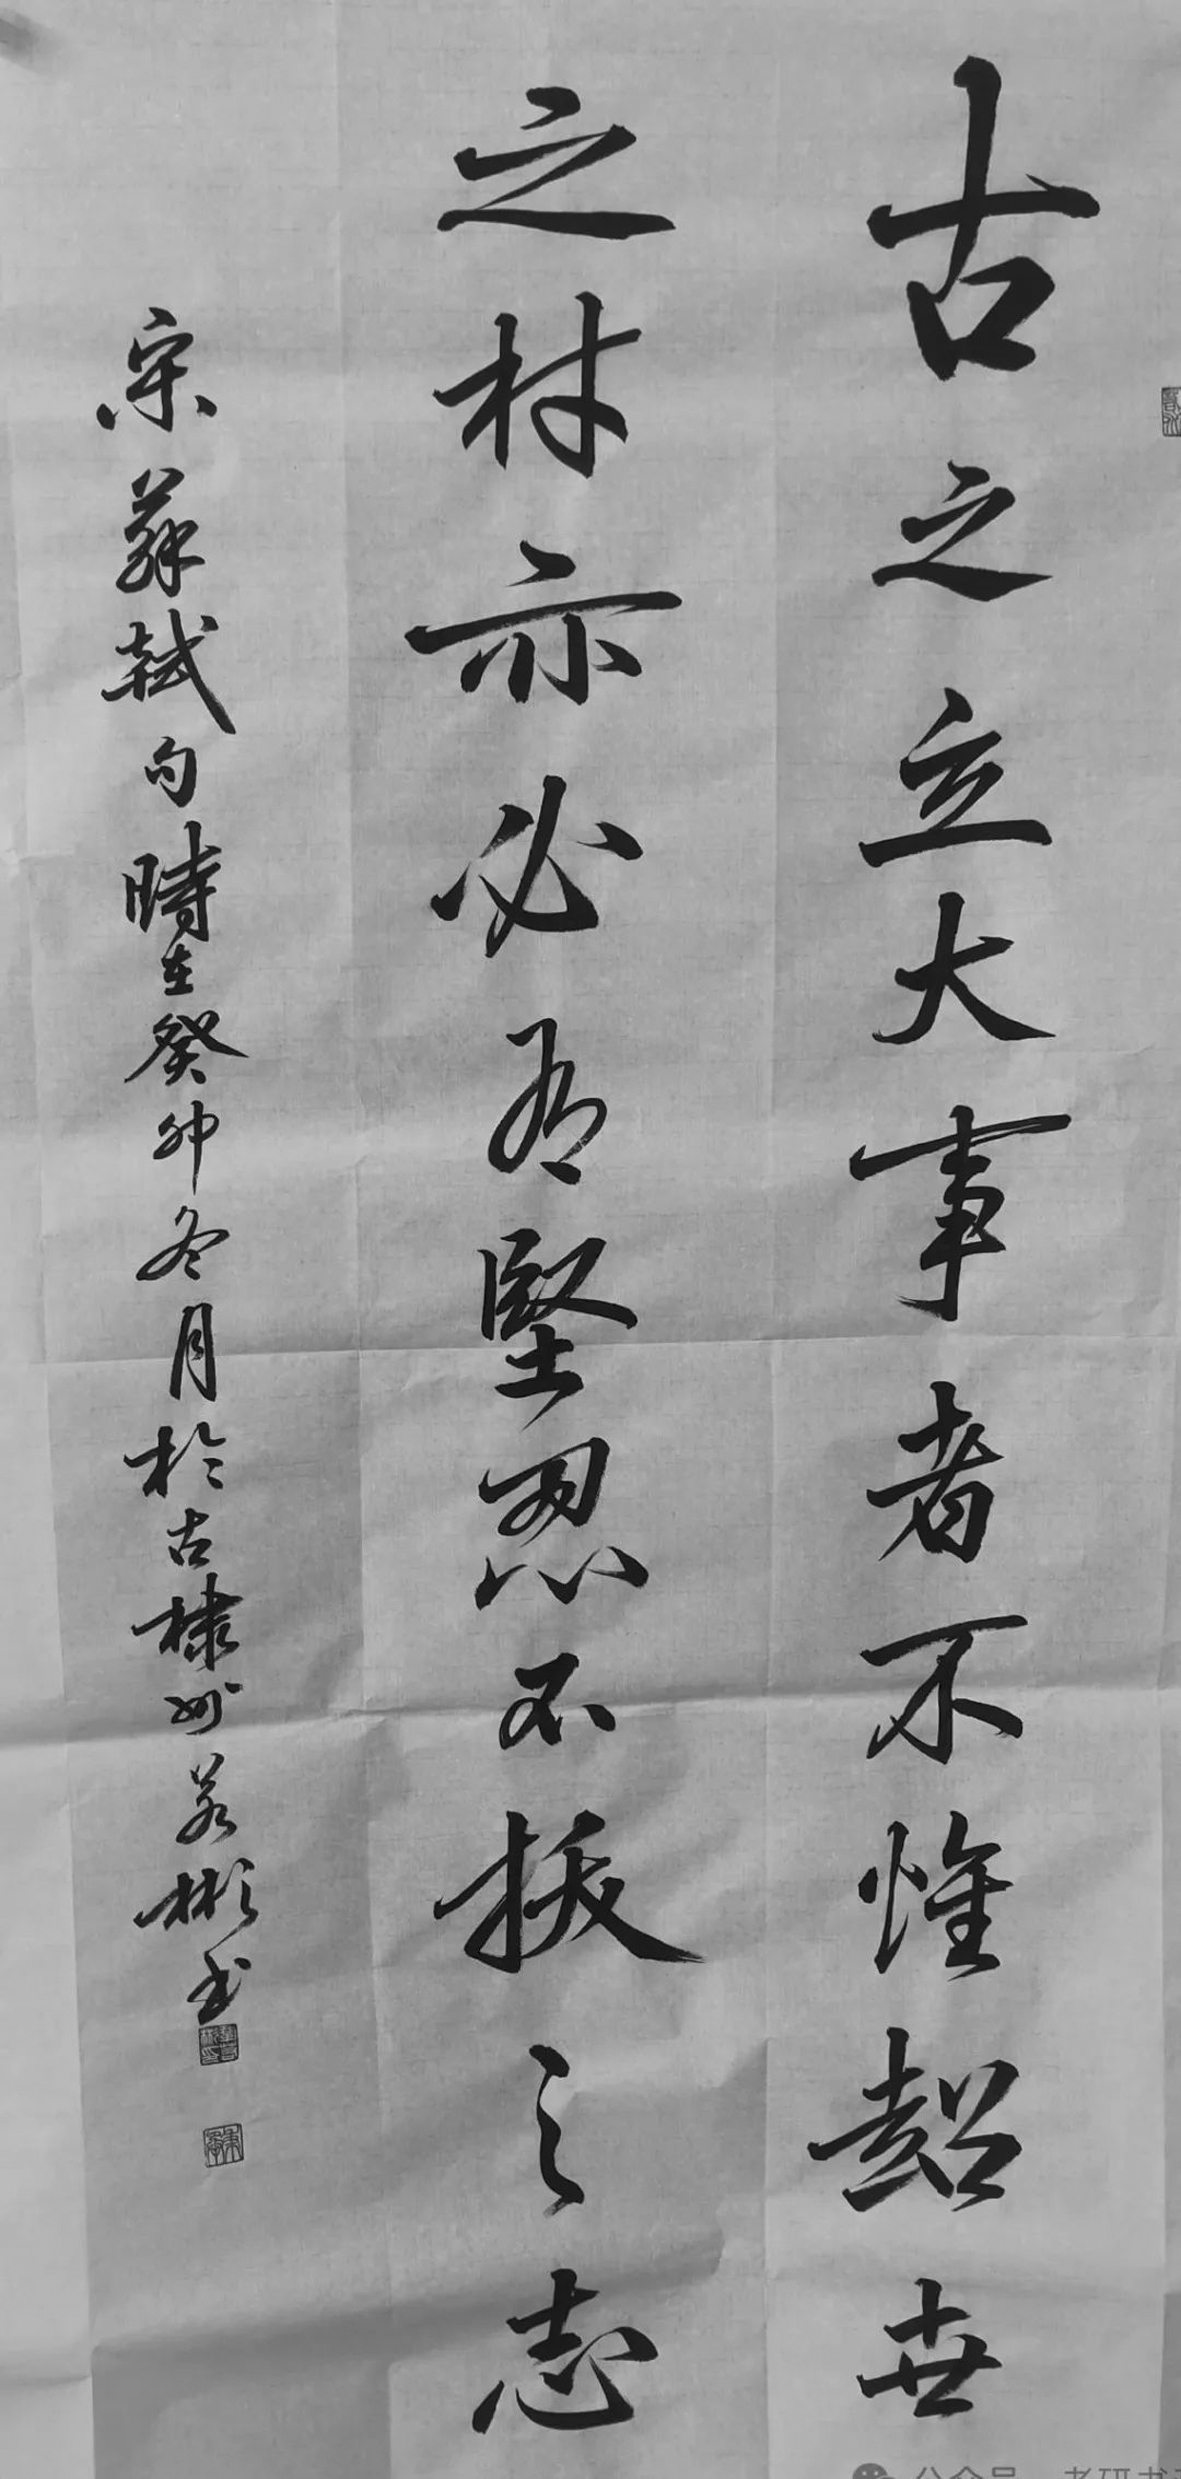 古之立大事者不惟超世
之材亦必有堅忍不拔之志
宋蘇軾句時在癸卯冬月於古棣州若彬书
公众号